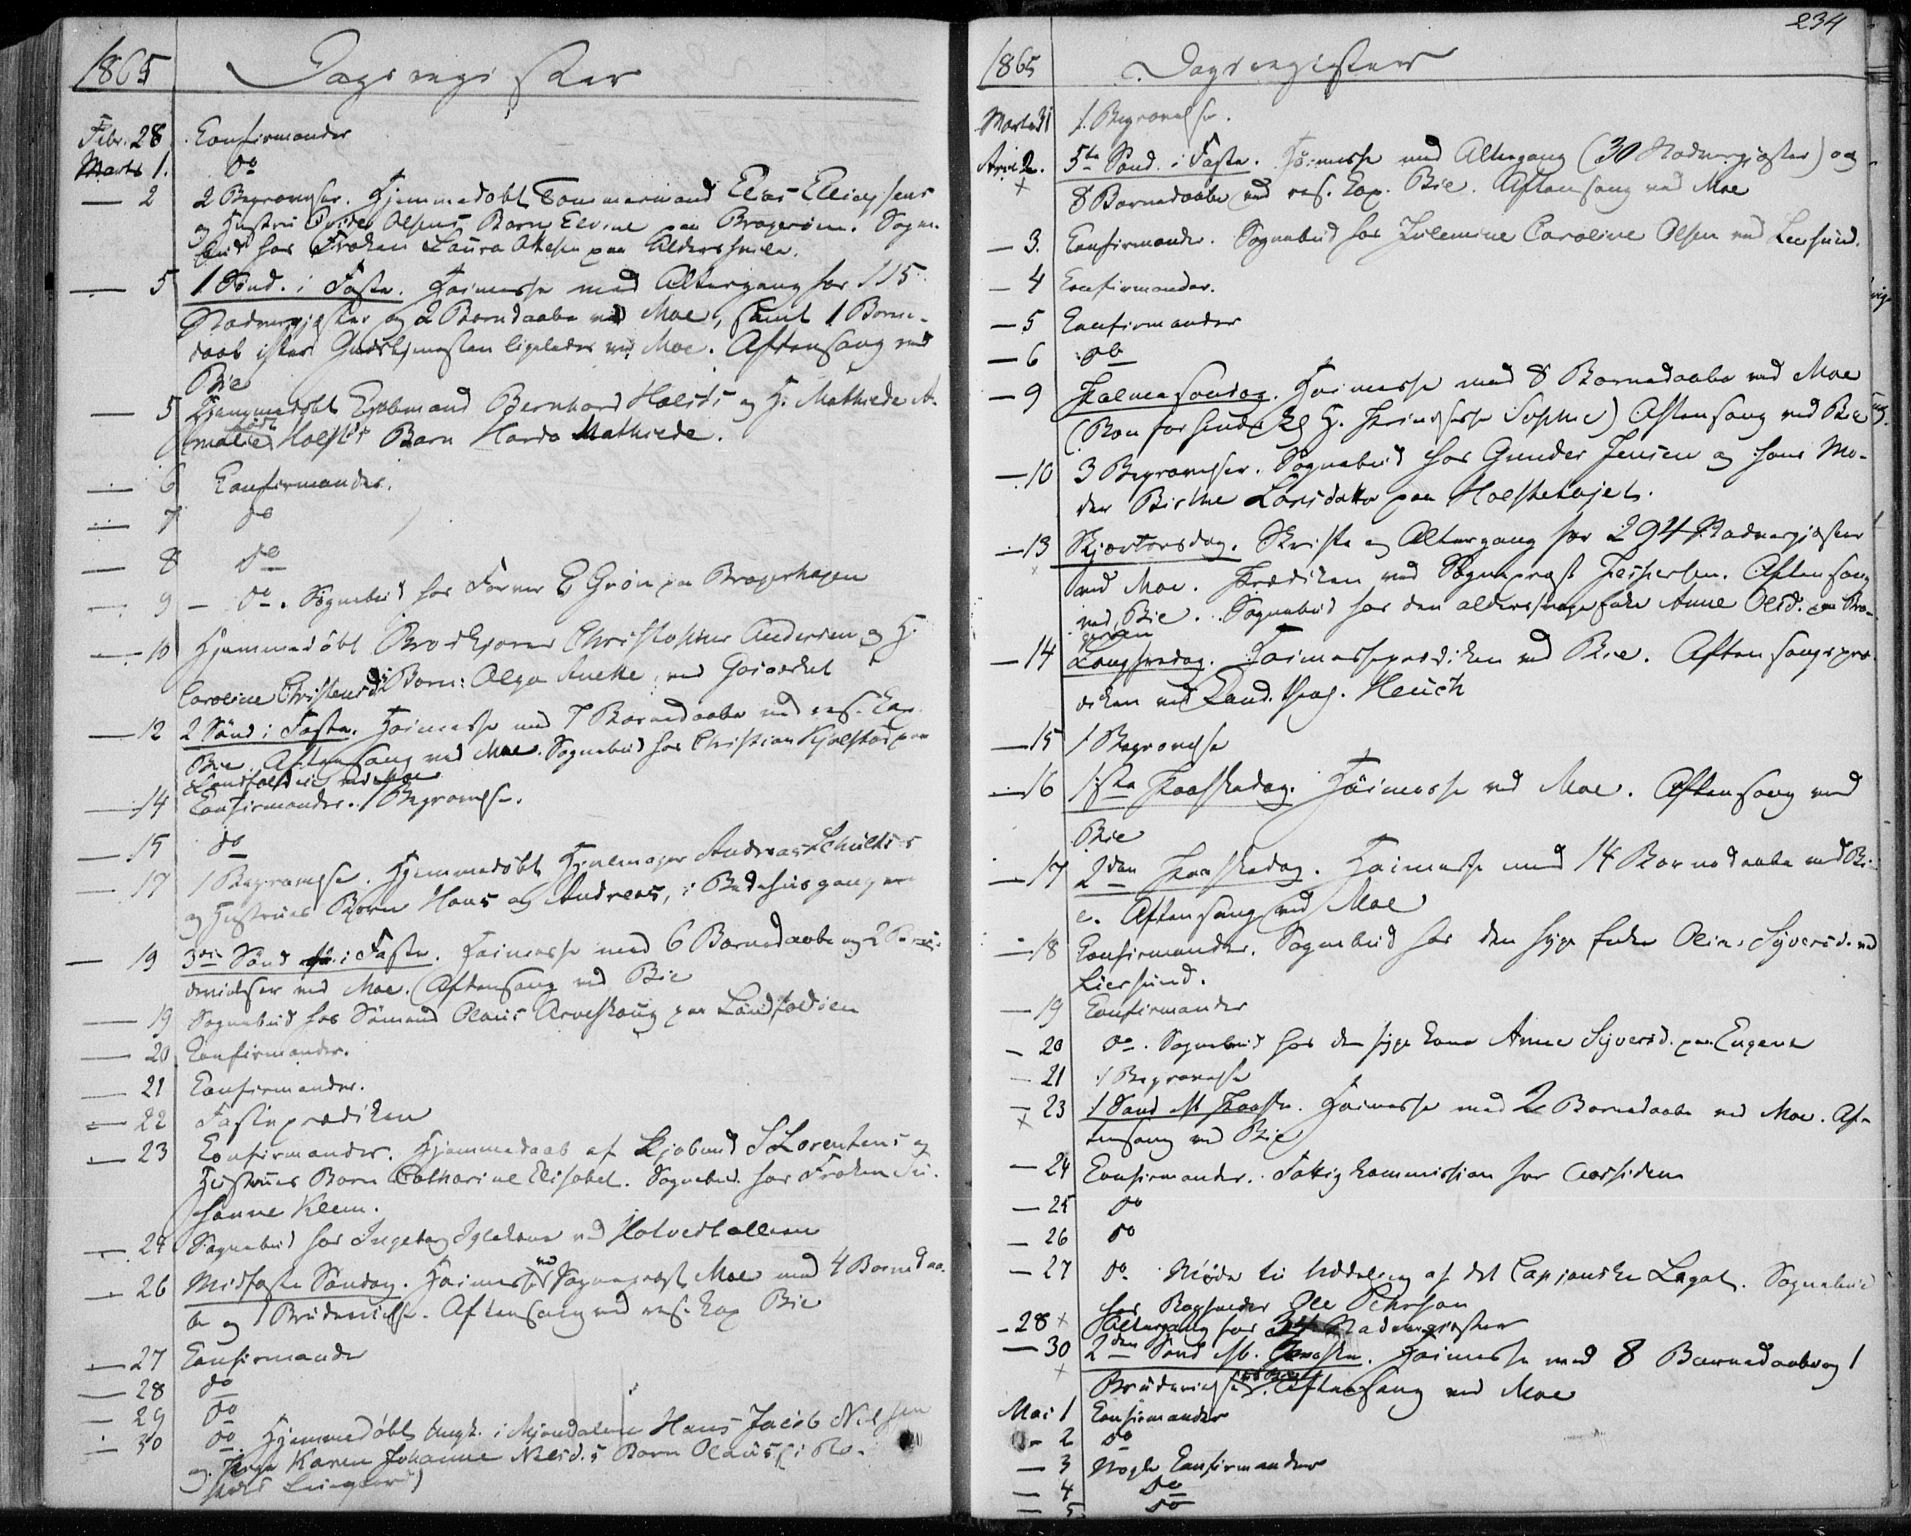 1865 Dagsregister
Febr. 28 Confirmander
Marts 1. do
— 2 2 Begravelser. Hjemmedøbt Tømmermand Elias Eliassens
og Hustru Olsens Barn Elvine paa Bragerøen. Sogne-
bud hos Frøken Laura paa Alders hvile.
— 5 1 Sønd. i Faste. Høimesse med Altergang for 115
Nadvergjæster og 2 Barnedaabe ved Moe, samt 1 Barne-
daab efter Gudstjenesten ligeledes ved Moe. Aftensang ved
Bie
— 5 Hjemmedøbt Kjøbmand Bernhard Holsts og H. Mathilde A-
malie født Holsts Barn Mathilde.
— 6 Confirmander.
— 7 do
— 8 do
— 9 — do. Sognebud hos Farver E Grøn paa Bragerhagen
— 10 Hjemmedøbt Brødkjører Christopher Andersen og H.
Caroline Christensd. Barn: Olga Anette ved Gasværket
— 12 2 Sønd i Faste. Høimesse med 7 Barnedaabe ved res. Cap.
Bie. Aftensang ved Moe. Sognebud hos Christian Kjølstad paa
Landfaldøen ved Moe
— 14 Confirmander. 1 Begravelse.
— 15 do
— 17 1 Begravelse. Hjemmedøbt Hjulmager Andreas Schultz's
og Hustrues Børn Hans og Andreas, i Bedehusgangen
— 19 3die Sønd i Faste. Høimesse med 6 Barnedaabe og 2 Bru-
devielser ved Moe. Aftensang ved Bie
— 19 Sognebud hos Sømand Olaus Arveskoug paa Landfaldøen
— 20 Confirmander.
— 21 Confirmander.
— 22 Fasteprædiken
— 23 Confirmander. Hjemmedaab af Kjøbmd S Lorentzens og
Hustrues Barn Catharine Elisabet. Sognebud hos Frøken Su-
sanne Klem.
— 24 Sognebud hos Ingeborg ved
— 26 Midfaste Søndag. Høimesse ved Sognepræst Moe med 4 Barnedaa-
be og 1 Brudevielse. Aftensang ved res. Cap Bie
— 27 Confirmander
— 28 do
— 29 do
— 30 do Hjemmedøbt i Mjøndalen Hans Jacob Nielsen
og Karen Johanne Nilsd.s Barn Olaus

234
1865 Dagsregister
Marts 31 1 Begravelse.
April 2. 5te Sønd. i Faste. Høimesse med Altergang (30 Nadvergjæster) og
8 Barnedaabe ved res. Cap. Bie. Aftensang ved Moe
— 3. Confirmander. Sognebud hos Julemine Caroline Olsen ved Liersund.
— 4 Confirmander.
— 5 Confirmander
— 6 do
— 9 Palmesøndag. Høimesse med 8 Barnedaabe ved Moe
(Bøn for Kgl H. Prindsesse Sophie) Aftensang ved Bie
— 10 3 Begravelser. Sognebud hos Gunder Jensen og hans Mo-
der Birthe Larsdatter paa
— 13 Skjærtorsdag. Skrifte og Altergang for 294 Nadvergjæster
ved Moe. Prædiken ved Sognepræst Jespersen. Aftensang
ved Bie. Sognebud hos den alderssvage Enke Anne Olsd. paa Bra-
gerøen
— 14 Langfredag. Høimesseprædiken ved Bie. Aftensangspræ-
diken ved Cand. theol. Heuch
— 15 1 Begravelse
— 16 1ste Paaskedag. Høimesse ved Moe. Aftensang ved
Bie
— 17 2den Paaskedag. Høimesse med 14 Barnedaabe ved Bi-
e. Aftensang ved Moe
— 18 Confirmander. Sognebud hos den syge Enke Olia Syversd. ved
Liersund.
— 19 Confirmander
— 20 do. Sognebud hos den syge Kone Anne Syversd. paa Engene
— 21 1 Begravelse
— 23 1 Sønd eft Paaske. Høimesse med 2 Barnedaabe ved Moe. Af-
tensang ved Bie
— 24 Confirmander. Fattigkommission for Aassiden
— 25 do
— 26 do
— 27 do. Møde til Uddeling af det Capjonske Legat. Sognebud
hos Ole Pehrson
— 28 Altergang for 34 Nadvergjæster
— 30 2den Sønd eft. Paaske. Høimesse med 8 Barnedaabe og 1
Brudevielse ved Bie. Aftensang ved Moe
Mai 1 Confirmander
— 2 do
— 3 Nogle Confirmander
— 4 do
— 5 do